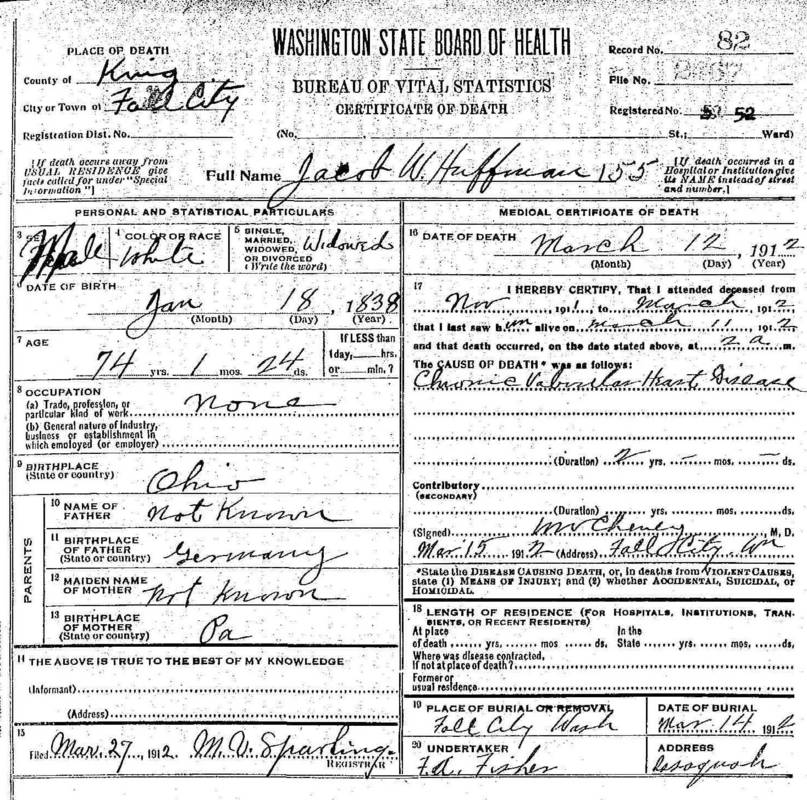 WASHINGTON STATE BOARD OF HEALTH
BUREAU OF VITAL STATISTICS
CERTIFICATE OF DEATH
PLACE OF DEATH
County of King
City or Town of Fall City
Registration Dist. No.
(No. St.; Ward)
Record No. 82
File No.
Registered No. 52
[If death occurs away from
USUAL RESIDENCE give
facts called for under "Special
Information"]
Full Name Jacob W. Huffman 155
[If death occurred in a
Hospital or Institution give
its NAME instead of street
and number.]
PERSONAL AND STATISTICAL PARTICULARS
3 SEX Male
4 COLOR OR RACE White
5 SINGLE,
MARRIED,
WIDOWED,
OR DIVORCED
(Write the word)
Widowed
6 DATE OF BIRTH
Jan 18, 1838
(Month) (Day) (Year)
7 AGE
74 yrs. 1 mos. 24 ds.
If LESS than
1 day, hrs.
or min.?
8 OCCUPATION
(a) Trade, profession, or
particular kind of work None
(b) General nature of industry,
business or establishment in
which employed (or employer)
9 BIRTHPLACE
(State or country) Ohio
PARENTS
10 NAME OF
FATHER Not Known
11 BIRTHPLACE
OF FATHER
(State or country) Germany
12 MAIDEN NAME
OF MOTHER Not Known
13 BIRTHPLACE
OF MOTHER
(State or country) Pa
14 THE ABOVE IS TRUE TO THE BEST OF MY KNOWLEDGE
(Informant)
(Address)
15
Filed Mar. 27, 1912. M. V. Sparling
REGISTRAR
MEDICAL CERTIFICATE OF DEATH
16 DATE OF DEATH March 12, 1912
(Month) (Day) (Year)
17 I HEREBY CERTIFY, That I attended deceased from
Nov 1911, to March 1912
that I last saw him alive on March 11, 1912
and that death occurred, on the date stated above, at 2 a m.
The CAUSE OF DEATH* was as follows:
Chronic Valvular Heart Disease
(Duration) 2 yrs. – mos. – ds.
Contributory
(SECONDARY)
(Duration) yrs. mos. ds.
(Signed) Cheney M. D.
Mar 15 1912 (Address) Fall City Wn
*State the DISEASE CAUSING DEATH, or, in deaths from VIOLENT CAUSES,
state (1) MEANS OF INJURY; and (2) whether ACCIDENTAL, SUICIDAL, or
HOMICIDAL.
18 LENGTH OF RESIDENCE (FOR HOSPITALS, INSTITUTIONS, TRAN-
SIENTS, OR RECENT RESIDENTS)
At place In the
of death yrs. mos. ds. State yrs. mos. ds.
Where was disease contracted,
If not at place of death?
Former or
usual residence
19 PLACE OF BURIAL OR REMOVAL
Fall City Wash
DATE OF BURIAL
Mar 14 1912
20 UNDERTAKER
F. A. Fisher
ADDRESS